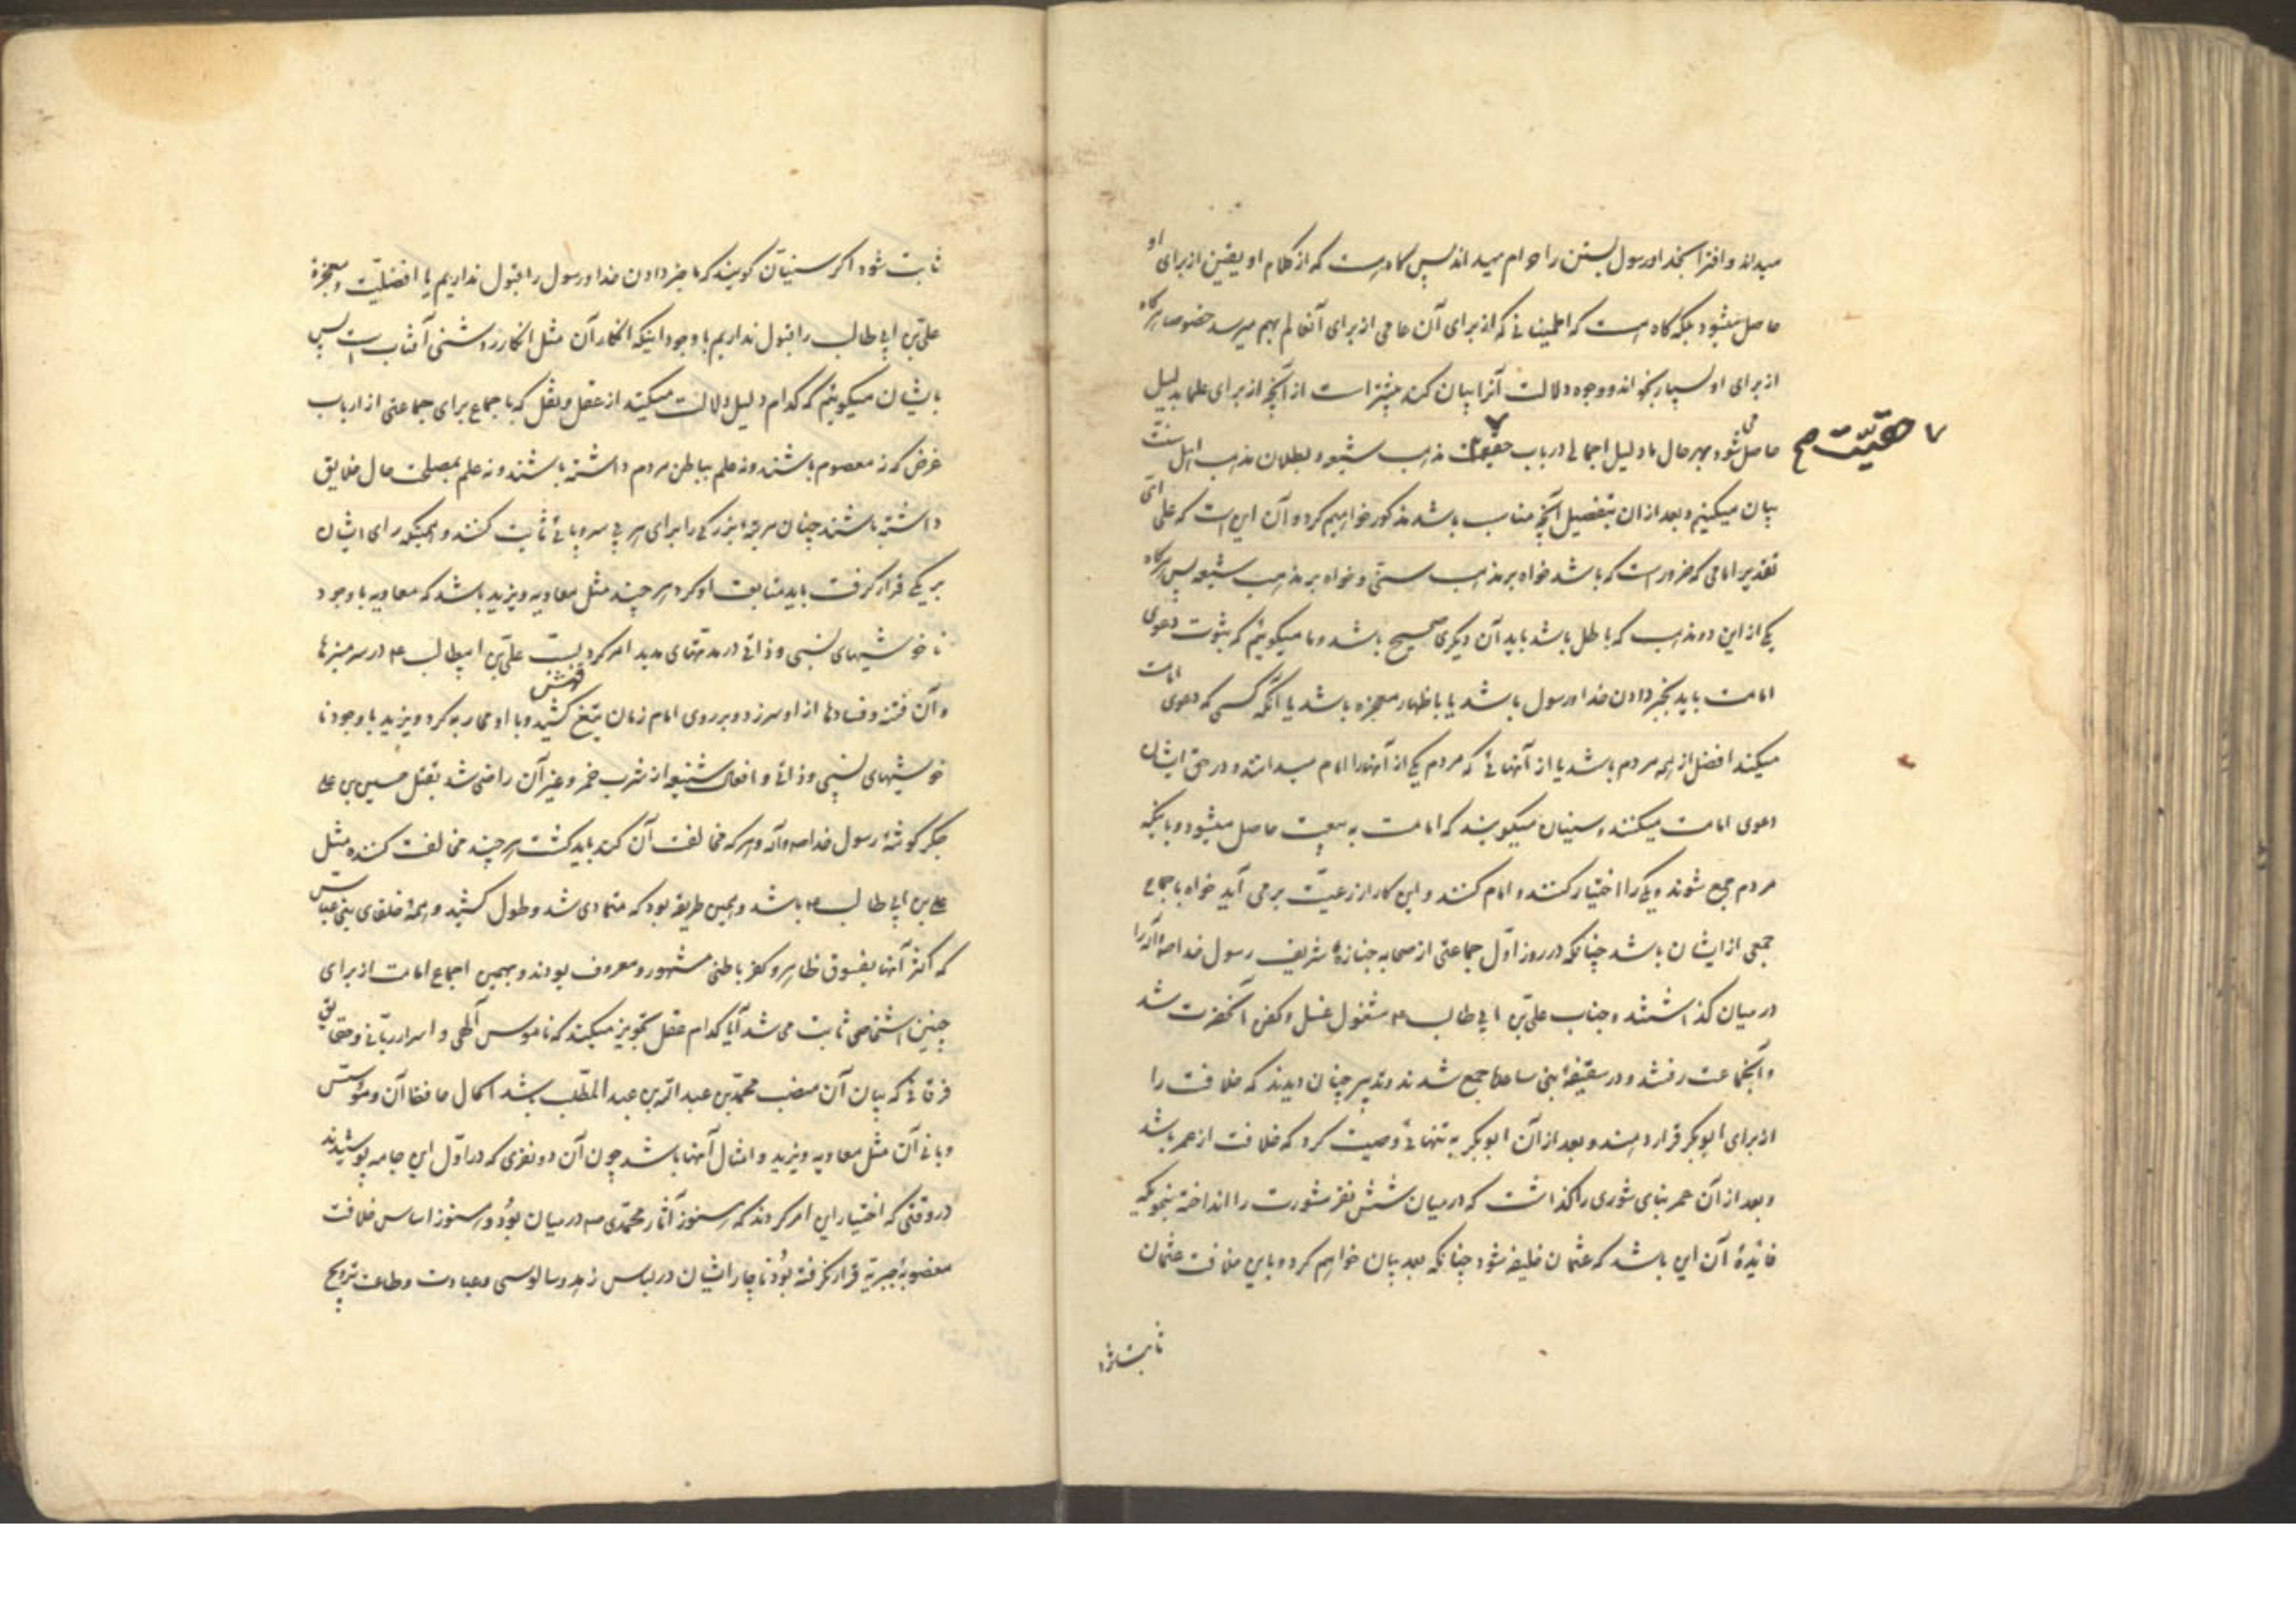 میداند و افترا بخدا و رسول بستن را حرام میداند پس گاه هست که از کلام او یقین از برای او
حاصل میشود بلکه گاه هست که اطمینانی که از برای آن عامی از برای آن عالم بهم میرسد خصوصا هرگاه
از برای او بسیار بخواند و وجوه دلالت آنرا بیان کند بیشتر است از آنچه از برای علما بدلیل
حاصل می شود بهر حال ما دلیل اجمالی در باب حقیت مذهب شیعه و بطلان مذهب اهل سنت
۷ حقیّت صح
بیان میکنیم و بعد از ان بتفصیل آنچه مناسب باشد مذکور خواهیم کرد و آن این است که علی ای
تقدیر امامی که ضرور است که باشد خواه بر مذهب سنّی و خواه بر مذهب شیعه پس هرگاه
یکی از این دو مذهب که باطل باشد باید آن دیگری صحیح باشد و ما میکوییم که ثبوت دعوی
امامت باید بخبر دادن خدا و رسول باشد یا باظهار معجزه باشد یا آنکه کسی که دعوی امامت
میکند افضل از همه مردم باشد یا از آنهائی که مردم یکی از آنها را امام میدانند و در حق ایشان
دعوی امامت میکنند و سنیان میکویند که امامت به بیعت حاصل میشود و باینکه
مردم جمع شوند و یکی را اختیار کنند و امام کنند و این کار از رعیّت بر می آید خواه باجماع
جمعی از ایشان باشد چنانکه در روز اوّل جماعتی از صحابه جنازهٔ شریف رسول خدا ص و آله را
در میان کذاشتند و جناب علیّ بن ابی طالب ع مشغول غسل و کفن آنحضرت شد
و آنجماعت رفتند و در سقیفهٔ بنی ساعده جمع شدند و تدبیر چنان دیدند که خلافت را
از برای ابو بکر قرار دهند و بعد از آن ابو بکر به تنهائی وصیت کرد که خلافت از عمر باشد
و بعد از آن عمر بنای شوری را کذاشت که در میان شش نفر مشورت را انداخته بنحویکه
فایدهٔ آن این باشد که عثمان خلیفه شود چنانکه بعد بیان خواهم کرد و باین خلافت عثمان
ثابت شود اکر
ثابت شود اکر سنیان کویند که ما خبر دادن خدا و رسول را قبول نداریم یا افضلیّت و معجزهٔ
علیّ بن ابی طالب را قبول نداریم با وجود اینکه انکار آن مثل انکار روشنی آفتاب است پس
بایشان میکوییم که کدام دلیل دلالت میکند از عقل و نقل که باجماع برای جماعتی از ارباب
غرض که نه معصوم باشند و نه علم بباطن مردم داشته باشند و نه علم بمصلحت حال خلایق
داشته باشند چنان مرتبهٔ بزرکی را برای هر بی سر و پائی ثابت کنند و همینکه رای ایشان
بر یکی قرار کرفت باید متابعت او کرد هر چند مثل معاویه و یزید باشد که معاویه با وجود
ناخوشیهای نسبی و ذاتی در مدتهای مدید امر کرد بسبّ علیّ بن ابیطالب ع در سر منبرها
و آن فتنه و فسادها از او سر زد و بر روی امام زمان تیغ کشید و با او محاربه کرد و یزید با وجود نا
خوشیهای نسبی و ذاتی و افعال شنیعه از شرب خمر و غیر آن راضی شد بقتل حسین بن علی
جکر کوشهٔ رسول خدا ص و آله و هر که مخالفت آن کند باید کشت هر چند مخالفت کننده مثل
علی بن ابی طالب ع باشد و همین طریقه بود که متمادی شد و طول کشید و همهٔ خلفای بنی عباس
که اکثر آنها بفسوق ظاهر و کفر باطنی مشهور و معروف بودند و بهمین اجماع امامت از برای
چنین اشخاصی ثابت می شد آیا کدام عقل تجویز میکند که ناموس آلهی و اسرار ربّانی و حقایق
فرقانی که بیان آن منصب محمّد بن عبد الله بن عبد المطّلب باشد اکمال حافظ آن و مؤسّس
و بانی آن مثل معاویه و یزید و امثال آنها باشد چون آن دو نفری که در اوّل این جامه پوشیدند
در وقتی که اختیار این امر کردند که هنوز آثار محمّدی ص در میان بوُد و هنوز اساس خلافت
مغصوبهٔ جبریّه قرار نکرفته بوُد ناچار ایشان در لباس زهد و سالوسی و عبادت و طاعت ترویج